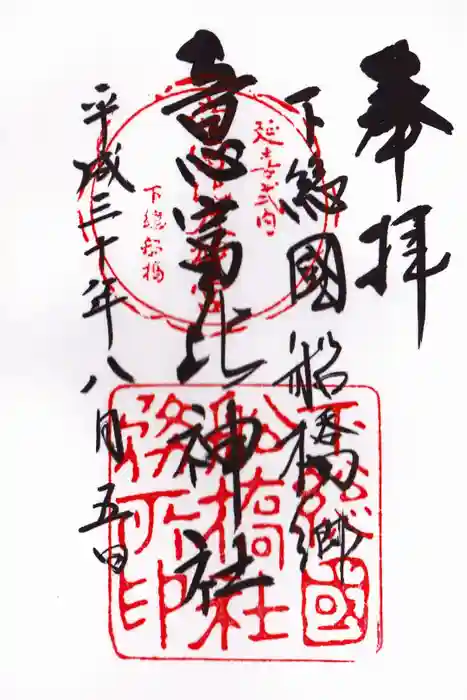 奉拝
下總國船橋郷
意富比神社
平成三十年八月五日
延喜式内
下總船橋
下總國
船橋社
務所印